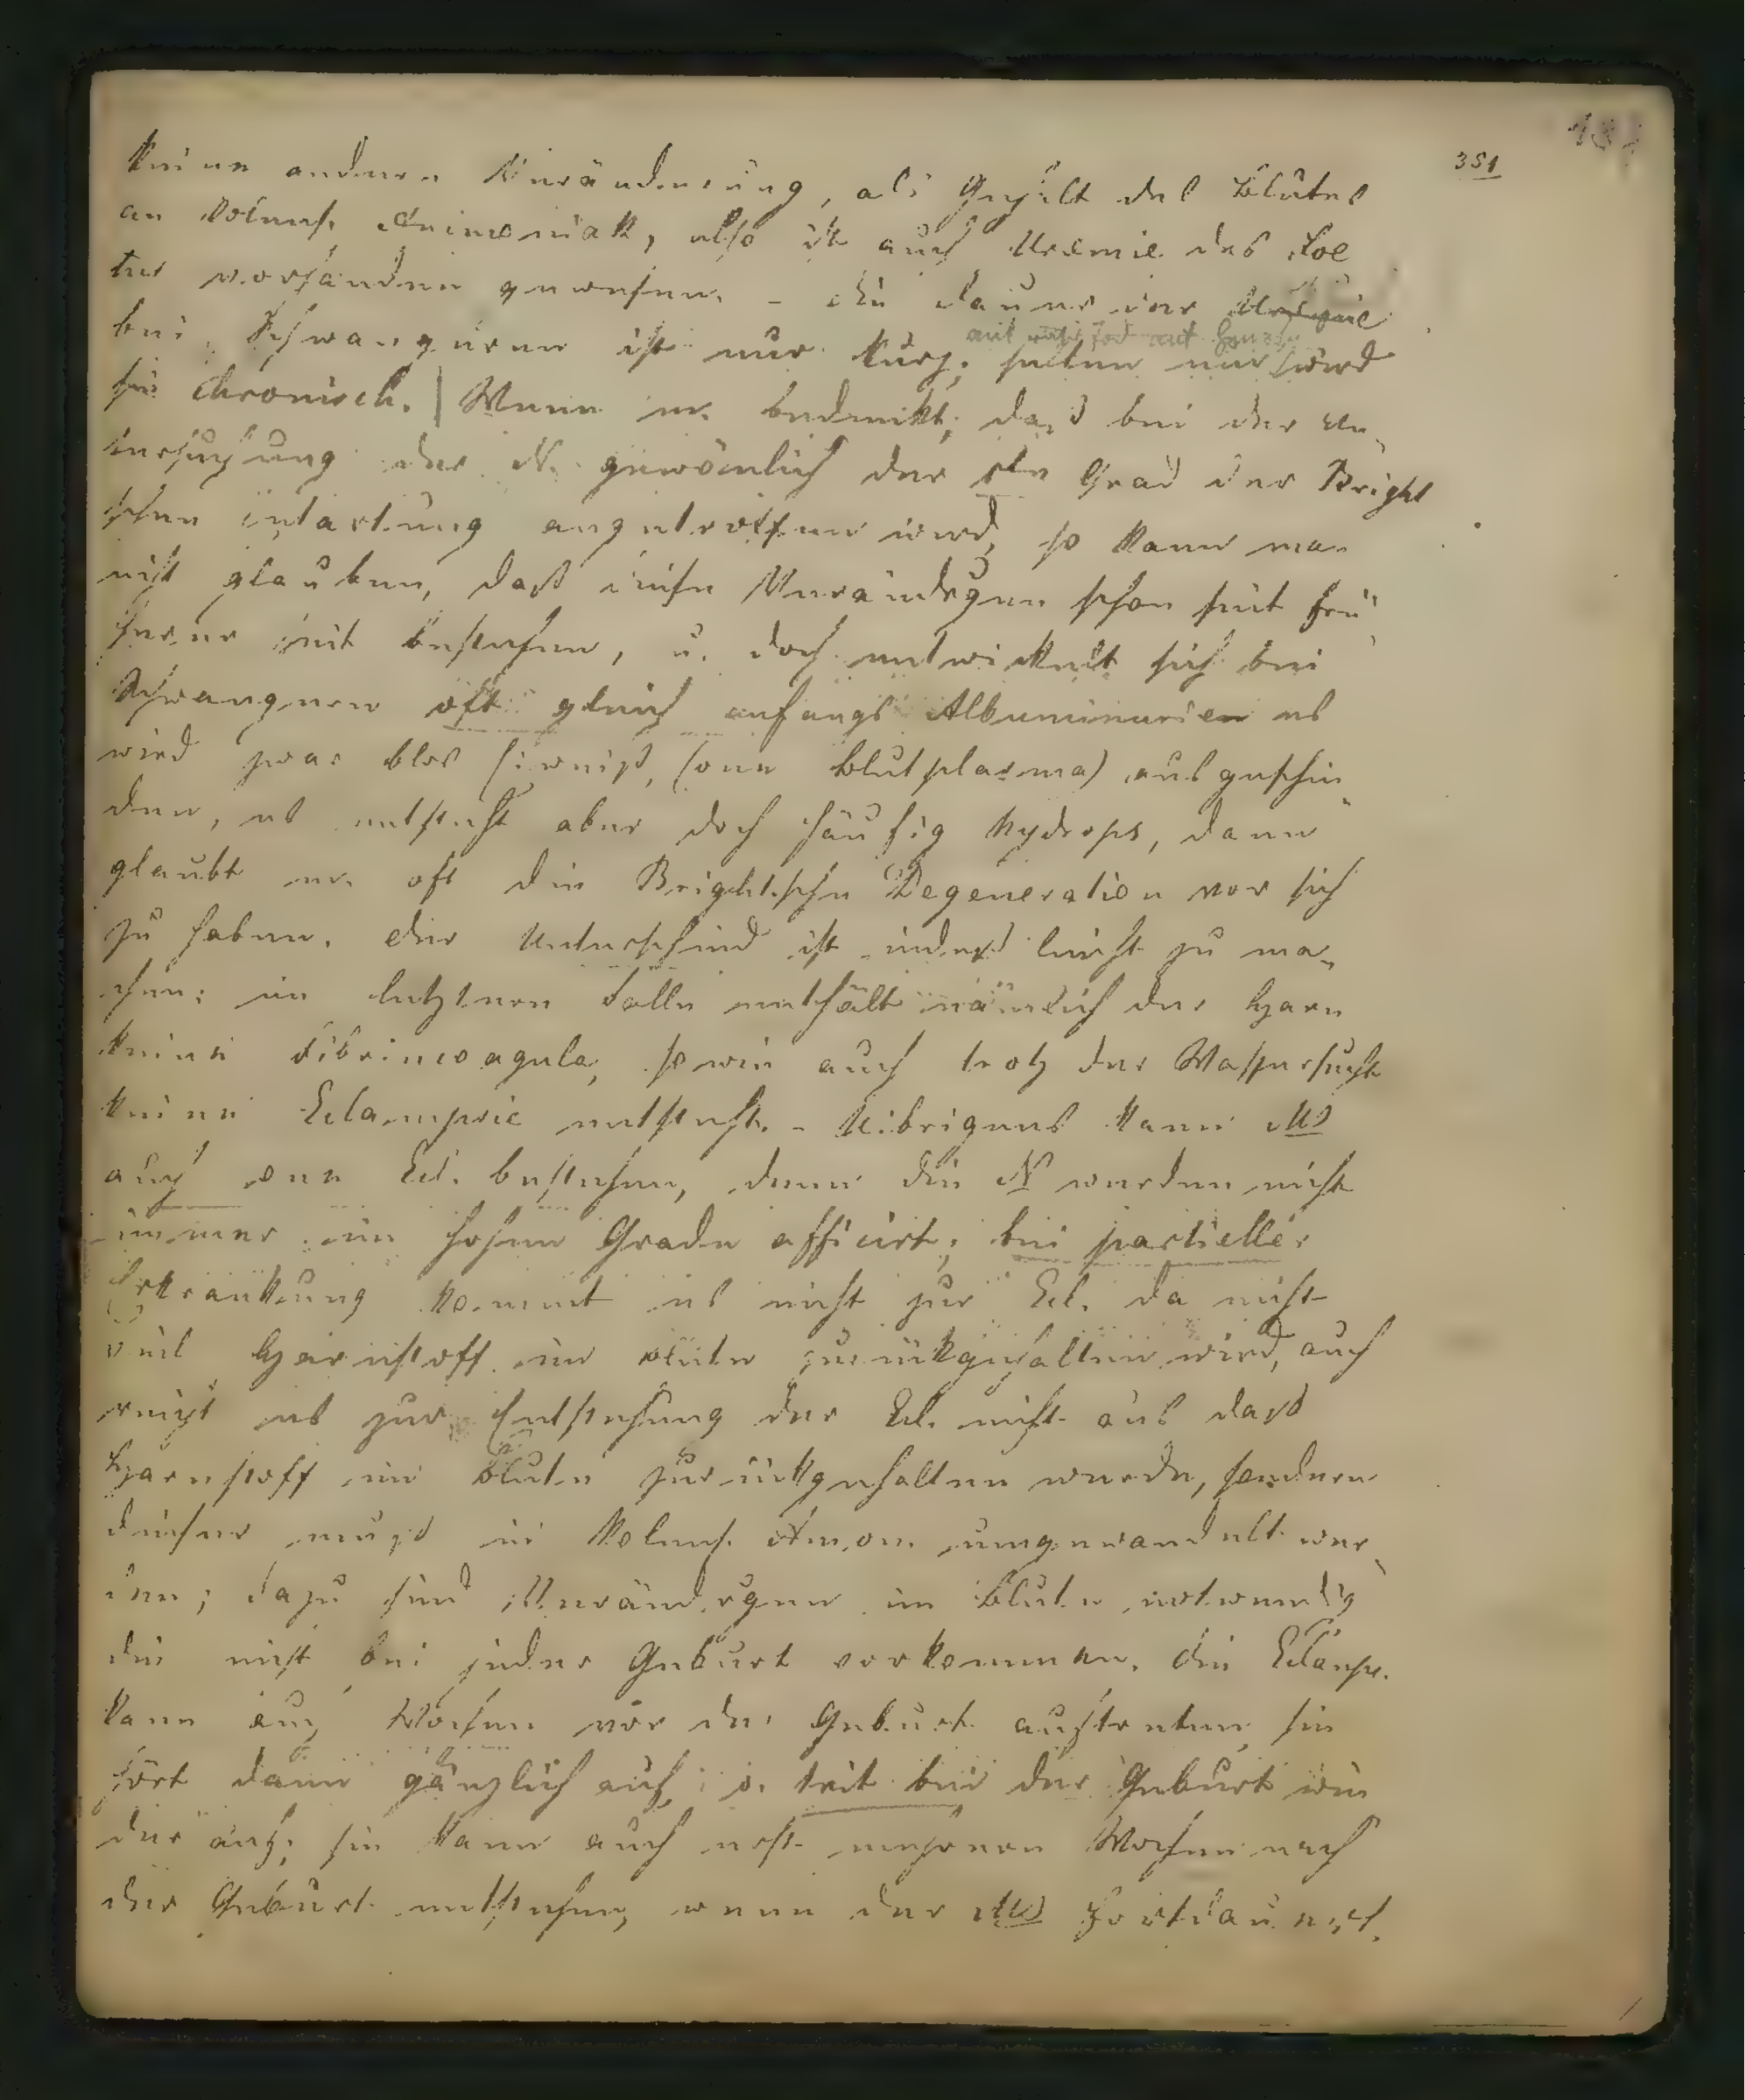 351
keine andere Veränderung, als Gehalt des Blutes
an kolens. Ammoniak, also ist auch Uremie des Foe
tus vorhanden gewesen. – Die Dauer der Uremie
bei Schwangeren ist nur kurz; selten nur wird
sie chronisch. | Wenn m. bedenkt, dass bei der Un-
tersuchung der N. gewönlich der 1te Grad der Bright
schen Entartung angetroffen wird, so kann man
nicht glauben, daß diese Verändrgen schon seit frü-
herer Zeit bestehen, u. doch entwickelt sich bei
Schwangern oft gleich anfangs Albuminurie es
wird zwar blos Eiweiß, (one Blutplasma) ausgeschie-
den, es entsteht aber doch häufig Hydrops, dann
glaubt m. oft die Brightsche Degeneration vor sich
zu haben. Der Unterschied ist indess leicht zu ma-
chen: im letztern Falle enthält nämlich der Harn
keine Fibrincoagula, sowie auch trotz der Wassersucht
keine Eclampsie entsteht. – Uibrigens kann MB
auch one Ecl. bestehen, denn die N werden nicht
immer im hohen Grade afficirt; bei partieller
Erkrankung kommt es nicht zur Ecl. da nicht
viel Harnstoff im Blute zurückgehalten wird, auch
reicht es zur Entstehung der Ecl. nicht aus dass
Harnstoff im Blute zurückgehalten werde, sondern
dieser muss in kolens. Amon. umgewandelt wer-
den; dazu sind Verändrgen im Blute notwendig
die nicht bei jeder Geburt vorkommen. Die Eclamps.
kann auch Wochen vor der Geburt auftreten, sie
hört dann gänzlich auf, u. trit bei der Geburt wie
der auf; sie kann auch erst mehrere Wochen nach
der Geburt entstehen, wenn der MB fortdauert.